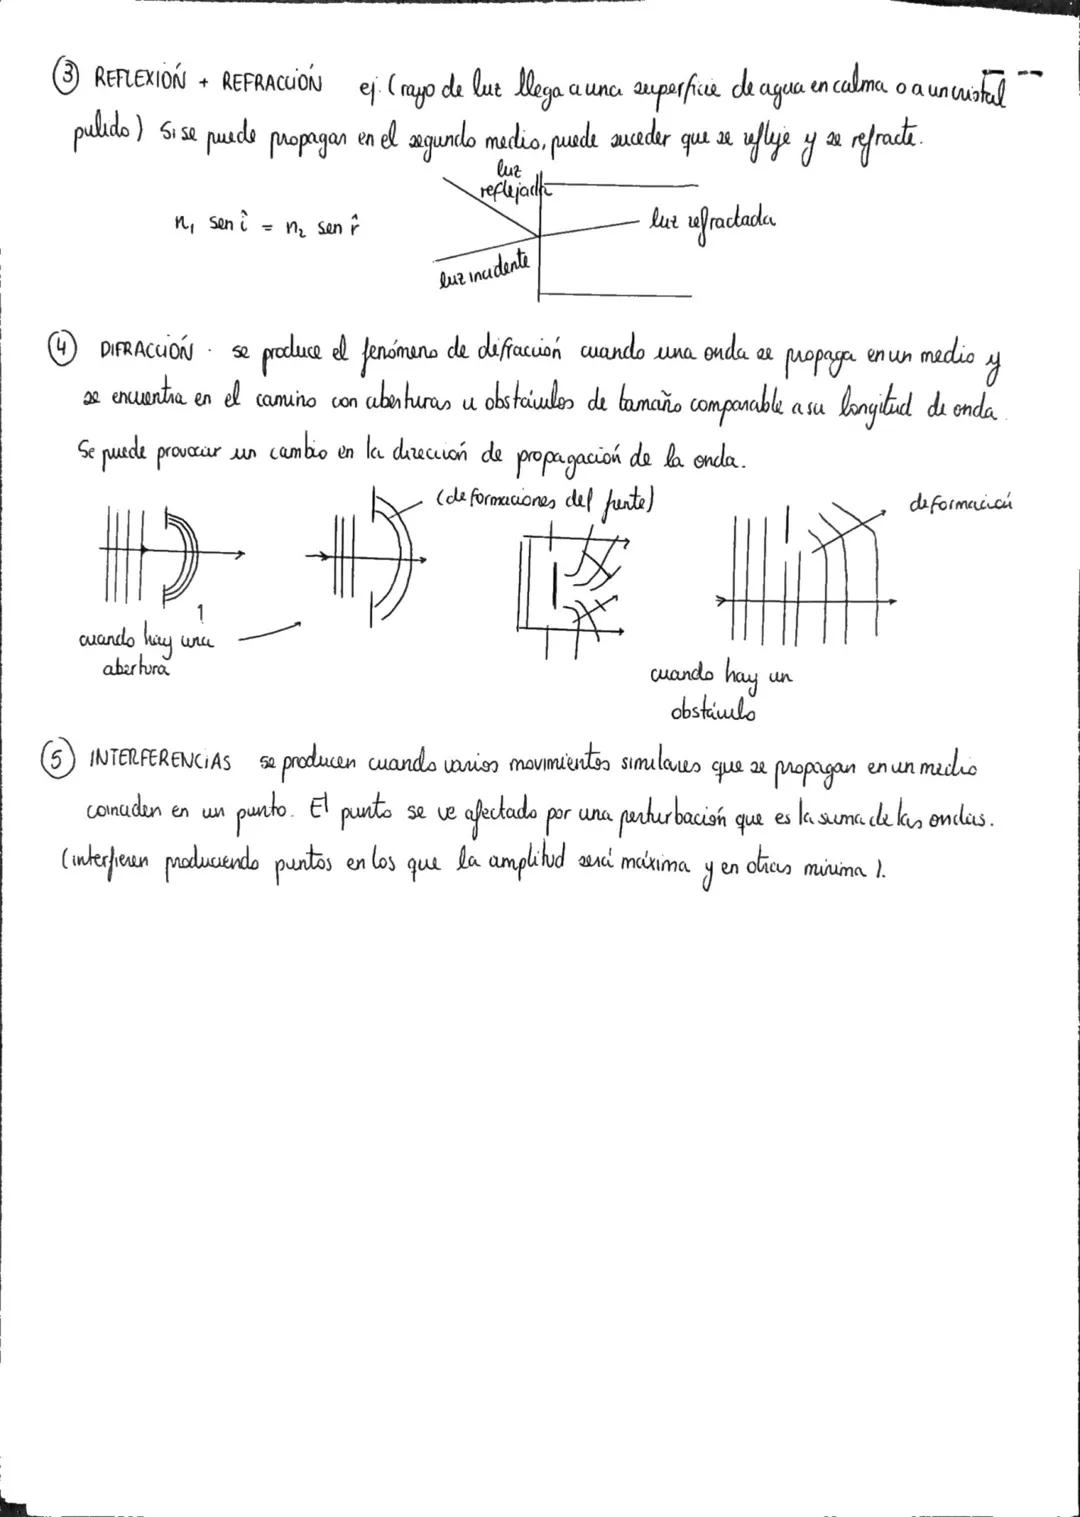 ③ REFLEXIÓN + REFRACCIÓN ej. (rayo de luz llega a una superficie de agua en calma o a un cristal
pulido) Si se puede propagar en el segundo medio, puede suceder que se refleje y se refracte.
luz
reflejada
n₁ sen î = n₂ sen r̂
luz refractada
luz incidente
④ DIFRACCIÓN. se produce el fenómeno de difracción cuando una onda se propaga en un medio y
se encuentra en el camino con aberturas u obstáculos de tamaño comparable a su longitud de onda.
Se puede provocar un cambio en la dirección de propagación de la onda.
(deformaciones del frente)
deformación
1
cuando hay una
abertura
cuando hay un
obstáculo
⑤ INTERFERENCIAS se producen cuando varios movimientos similares que se propagan en un medio
coinciden en un punto. El punto se ve afectado por una perturbación que es la suma de las ondas.
(interfieren produciendo puntos en los que la amplitud será máxima y en otras mínima).